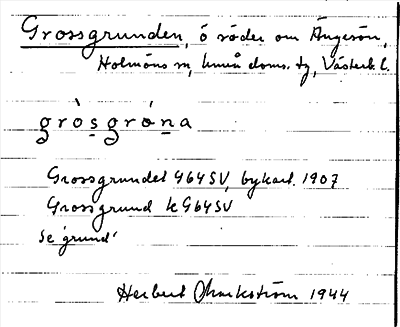 Grossgrunden, ö söder om Ängesön,
Holmöns sn, Umeå doms. tg, Västerb. l.
gròs gró̱na
Grossgrundet 964SV, bykart. 1907
Grossgrund k 964SV
Se 'grund'
Herbert Markström 1944